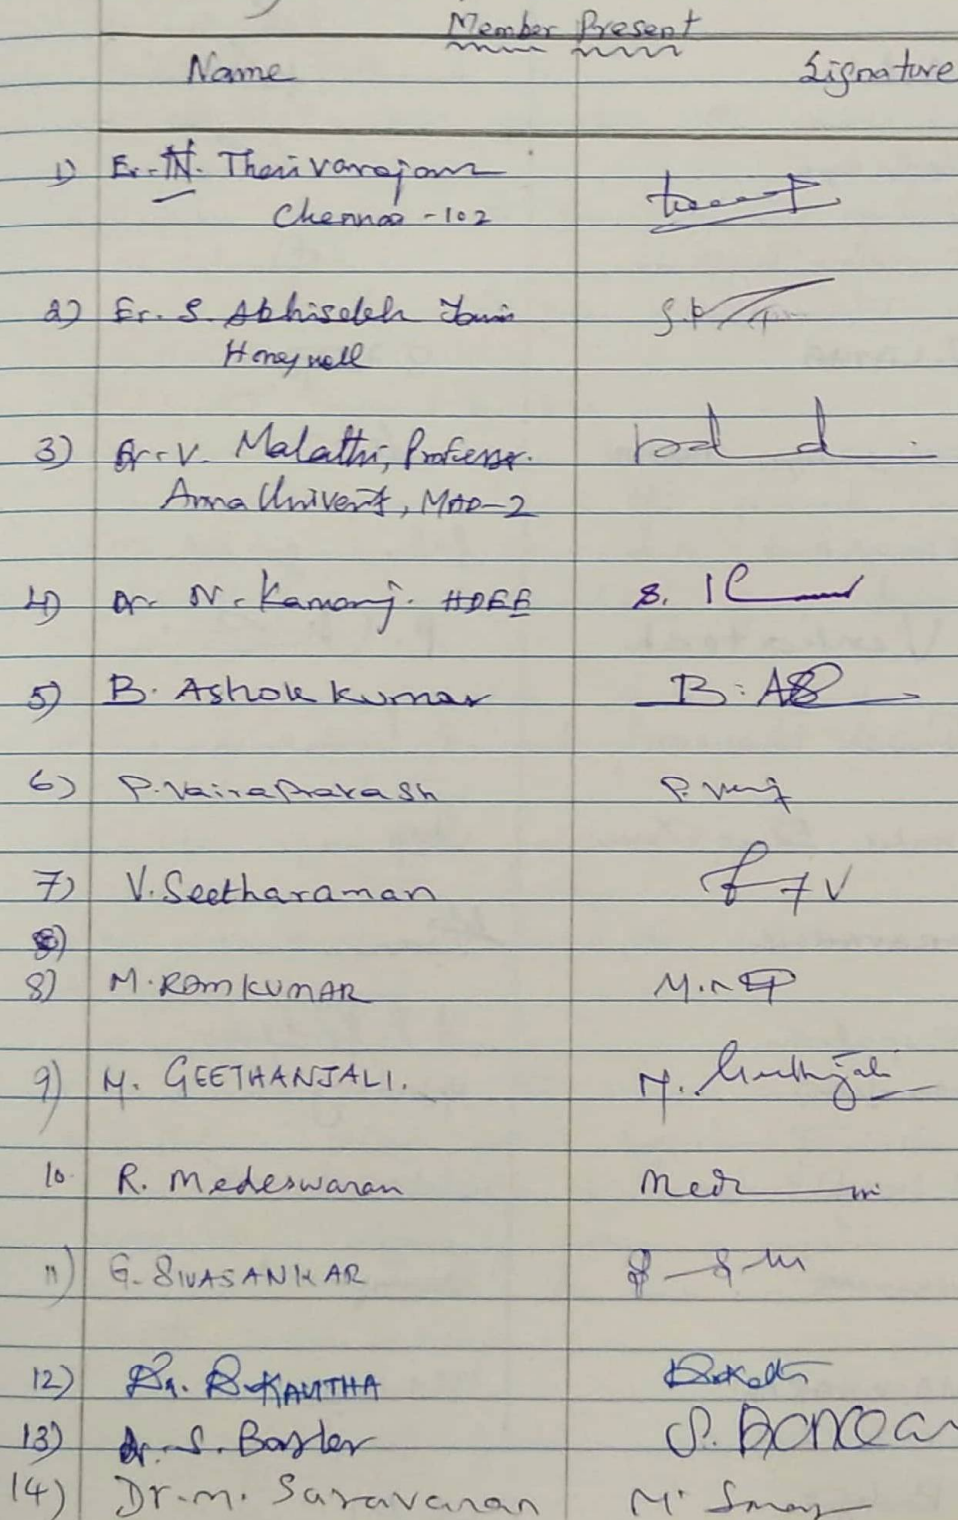 Member Present
Name Signature
1) Er. N. Thenivarajan
Chennai -102
2) Er. S. Abhishek Jain
Honeywell
3) Dr. V. Malathi, Professor.
Anna University, MAD-2
4) Dr. N. Kamaraj. HDEE
5) B. Ashok kumar B. AS
6) P. Vairaprakash P.
7) V. Seetharaman
8)
8) M. RAMKUMAR M.
9) M. GEETHANJALI. M. Geethanjali
10. R. Medeswaran
11) G. SIVASANKAR
12) Dr. R. KAVITHA
13) Dr. S. Baskar S. Baskar
14) Dr. M. Saravanan M.